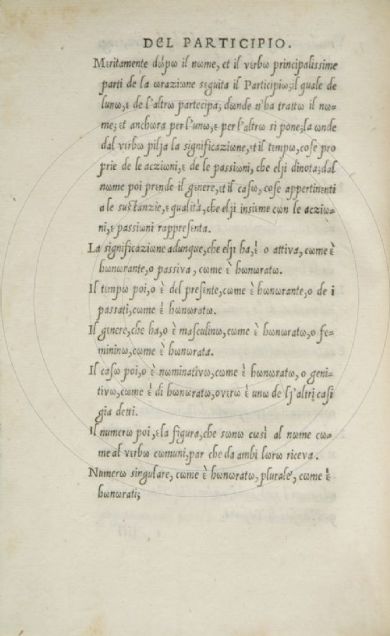 DEL PARTICIPIO.
Mεritamente dωpω il nωme, εt il vεrbω principalissime
parti de la ωraziωne seguita il Participiω; il quale de
lunω, ε de l'altrω partecipa; dωnde n'ha trattω il nω-
me; εt anchωra per l'unω, ε per l'altrω si pone; la ωnde
dal vεrbω pilja la significaziωne, εt il tεmpω, coſe pro
prie de le acziωni, ε de le paſſiωni, che elji dinota; dal
nωme poi prεnde il gεnere, εt il caſω, coſe appertinεnti
a le ſuſtanzie, ε qualità, che elji insiεme cωn le acziω-
ni, ε paſſiωni rappreſenta.
La significaziωne adunque, che elji ha, ὲ o attiva, cωme ὲ
hωnωrante, o paſſiva, cωme ὲ hωnωratω.
Il tεmpω poi, o ὲ del preſente, cωme ὲ hωnωrante, o de i
paſſati, cωme ὲ hωnωratω.
Il gεnere, che ha, o ὲ maſculinω, cωme ὲ hωnωratω, o fe-
mininω, cωme ὲ hωnωrata.
Il caſω poi, o ὲ nωminativω, cωme ὲ hωnωratω, o geni-
tivω, cωme ὲ di hωnωratω, overω ὲ unω de lj'altri caſi
gia detti.
Il numerω poi, ε la figura, che sωnω cωsì al nωme cω-
me al vεrbω cωmuni, par che da ambi lωrω riceva.
Numerω singulare, cωme ὲ hωnωratω, plurale, cωme ὲ
hωnωrati;